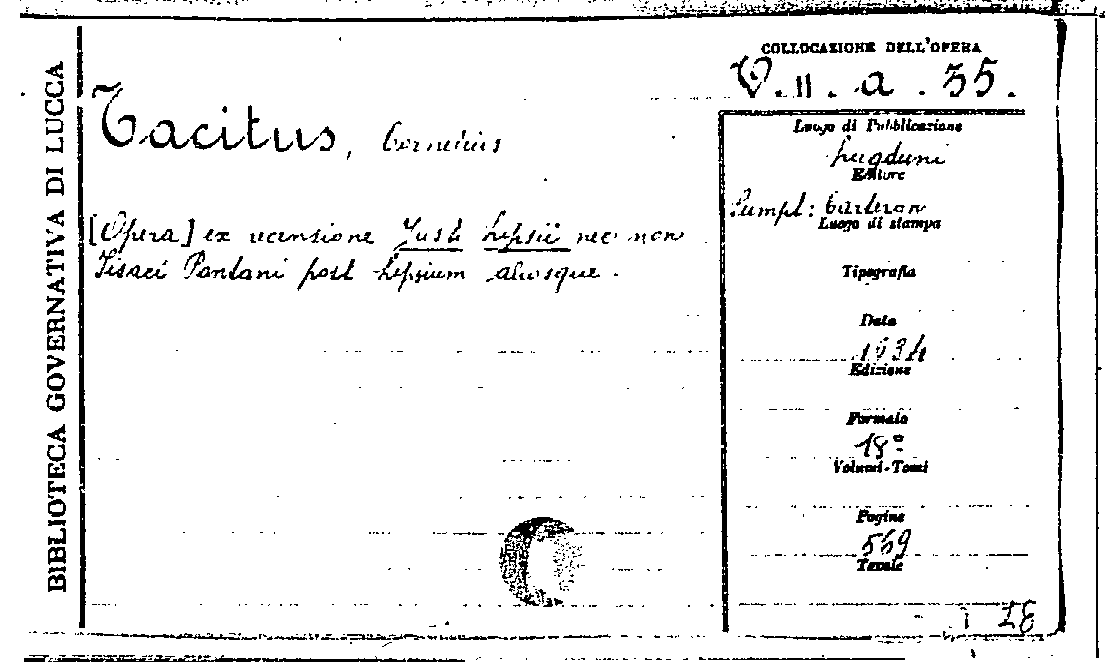 BIBLIOTECA GOVERNATIVA DI LUCCA
Tacitus, Cornelius
[Opera] ex recensione Justi Lipsii nec non
Pontani post Lipsium aliosque.
COLLOCAZIONE DELL'OPERA
V. II. a. 35.
Luogo di Pubblicazione
Lugduni
Editore
Sumpt:
Luogo di stampa
Tipografia
Data
1634
Edizione
Formato
18º
Volumi-Tomi
Pagine
569
Tavole